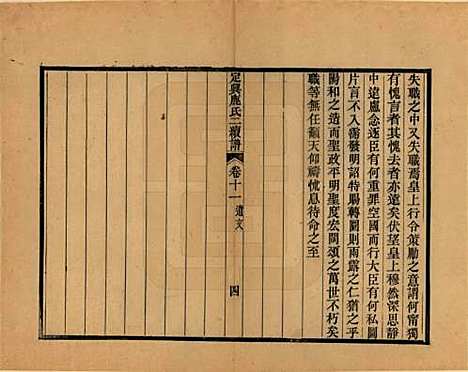 失職之中又失職焉皇上行令策勵之意謂何甯獨
有愧言者其愧去者亦遠矣伏望皇上穆然深思靜
中遠慮念逐臣有何重罪空國而行大臣有何私圖
片言不入需發明詔特賜轉圜則雨露之仁猶之乎
陽和之造而聖政平明聖度宏闊頌之萬世不朽矣
職等無任籲天仰禱惴息待命之至
定興鹿氏二續譜
卷十一
遺文
四